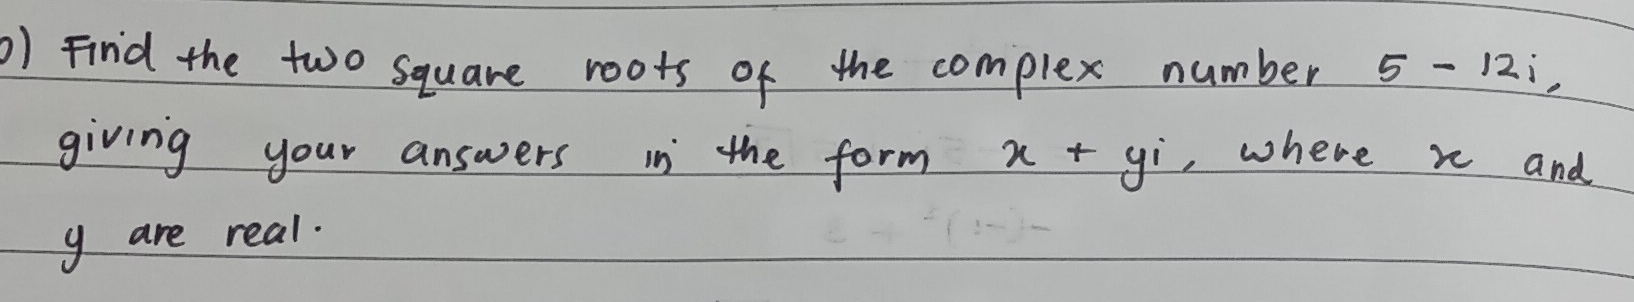 b) Find the two square roots of the complex number 5 - 12i,
giving your answers in the form x + yi, where x and
y are real.